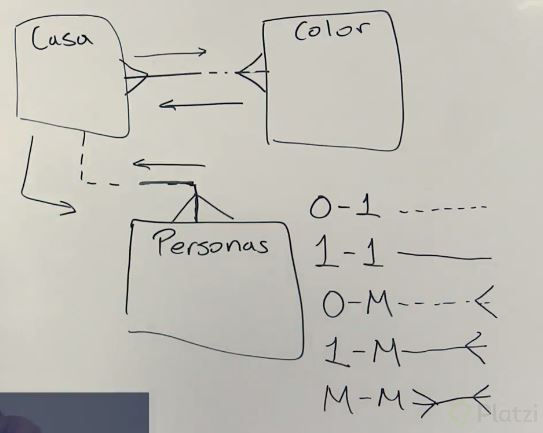 Casa
Color
Personas
0-1
1-1
0-M
1-M
M-M
Platzi